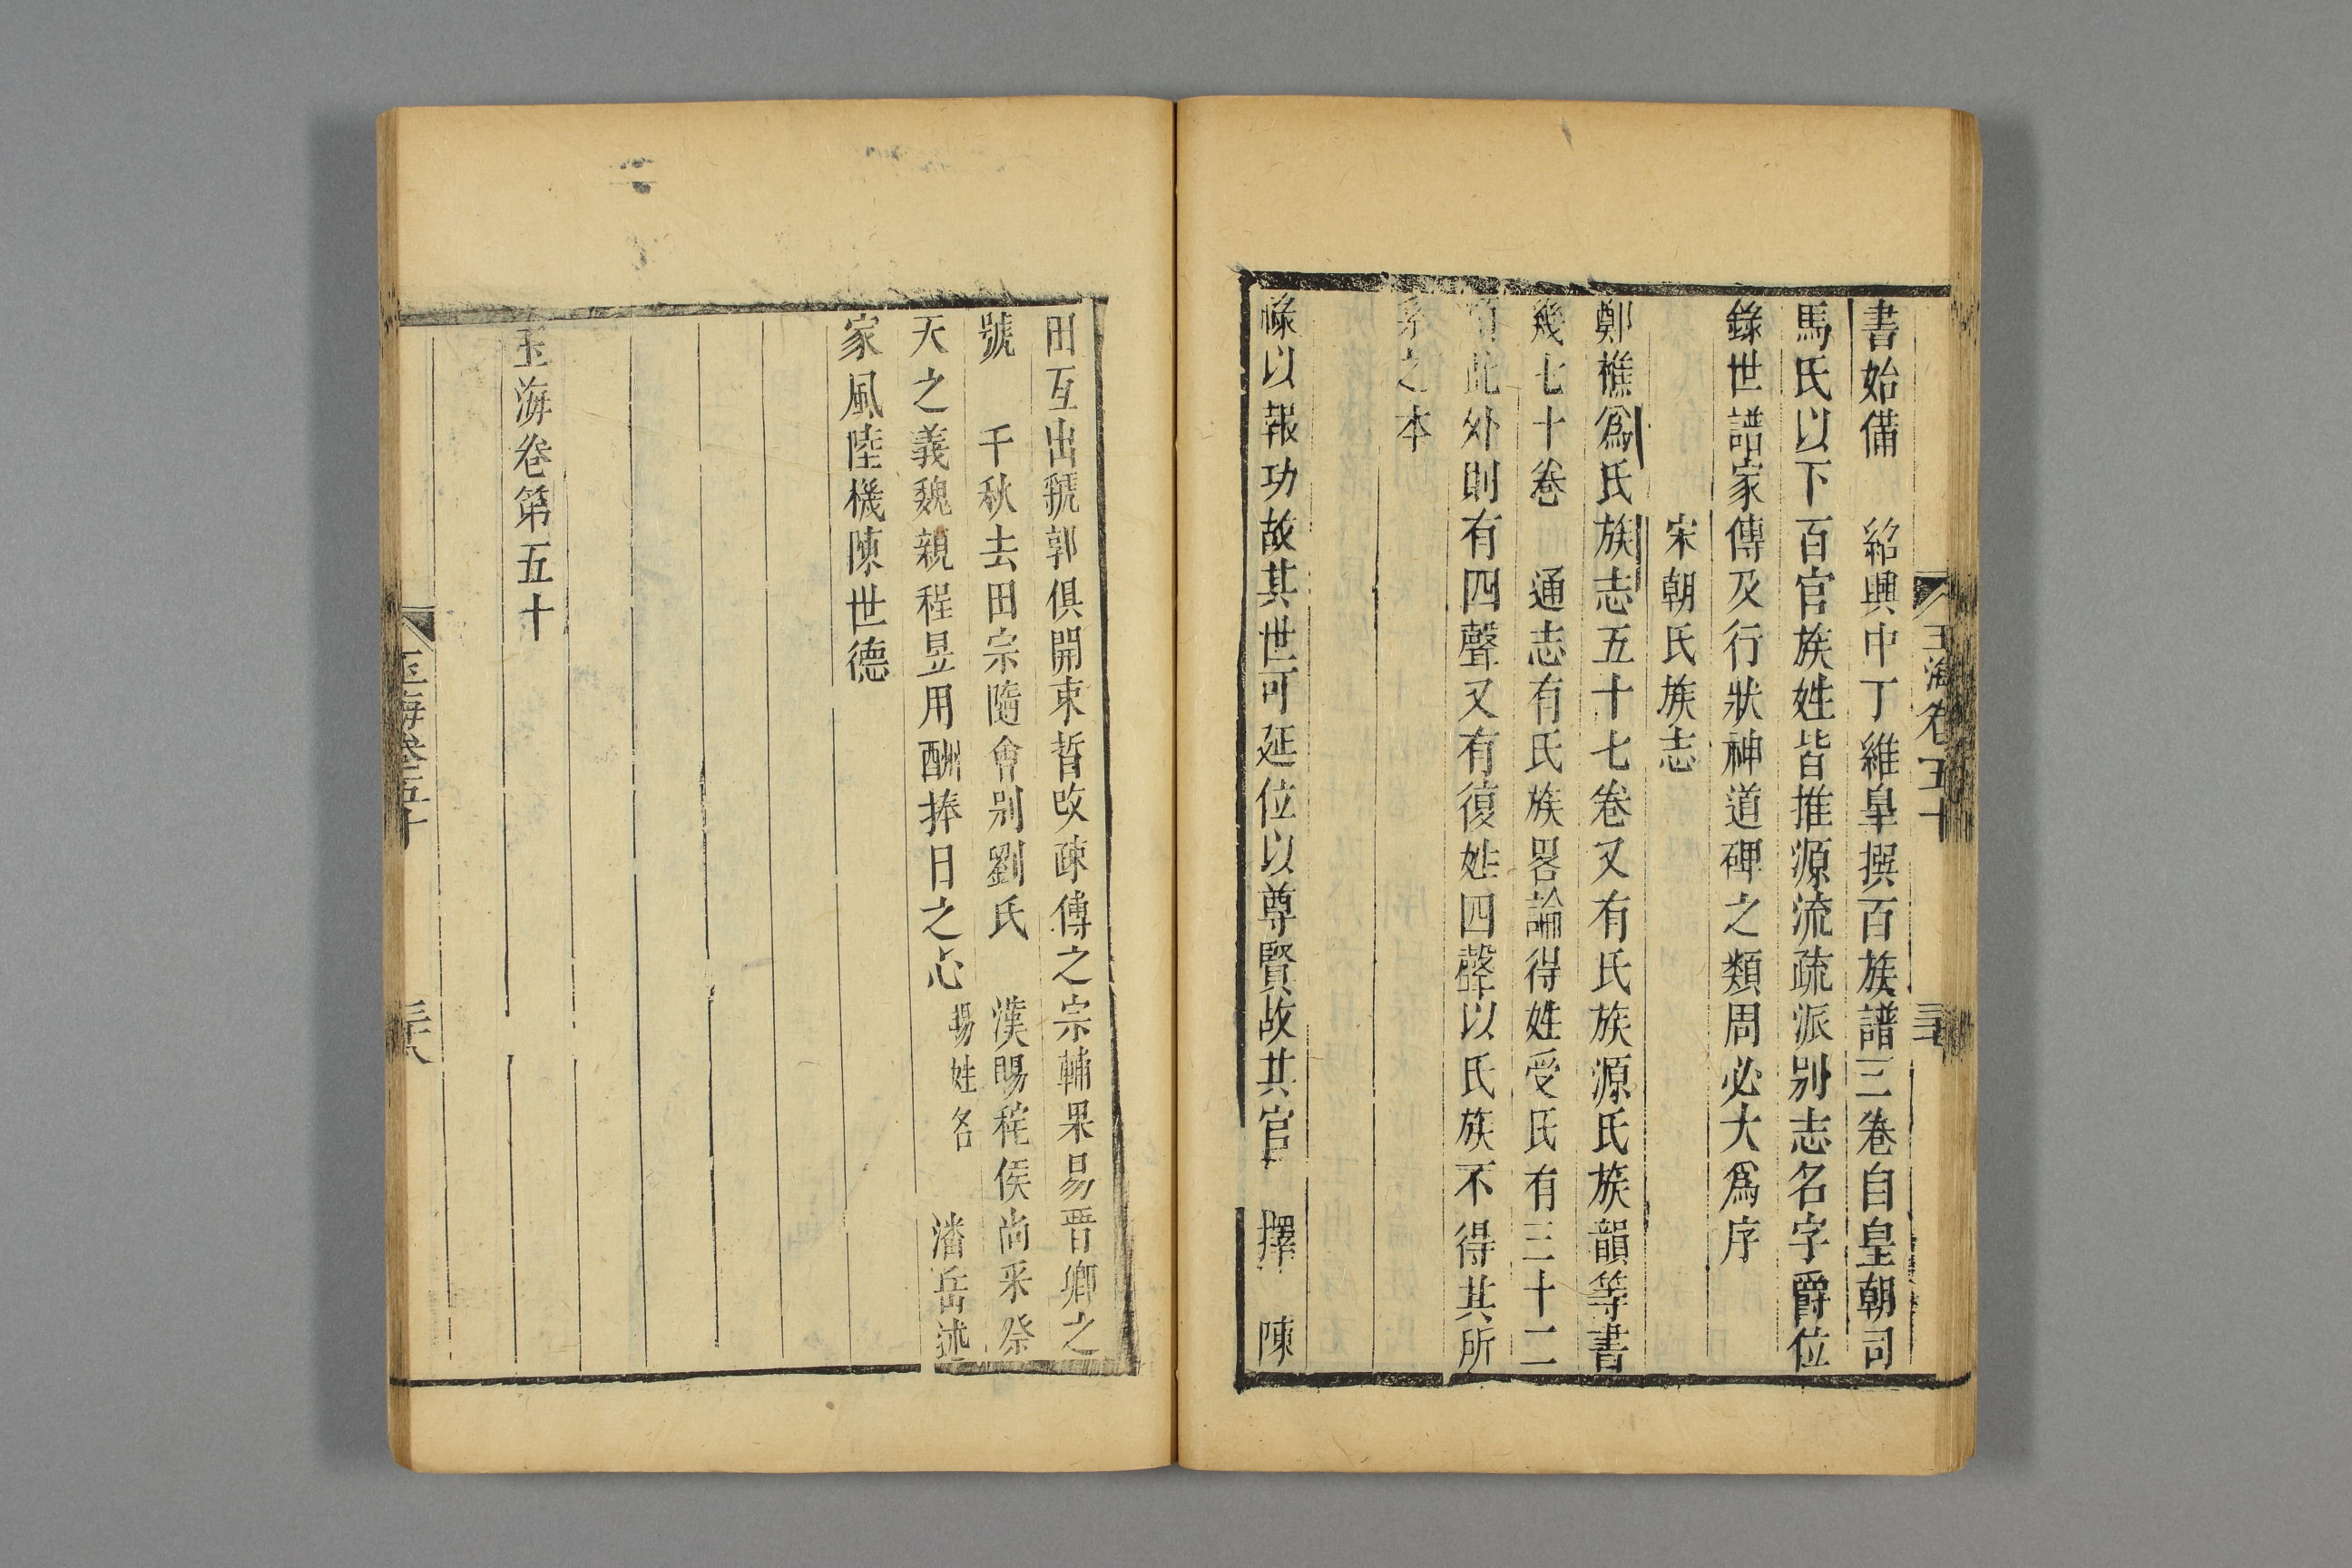 書始備　紹興中丁維皐撰百族譜三卷自皇朝司
馬氏以下百官族姓皆推源流疏派别志名字爵位
錄世譜家傳及行狀神道碑之類周必大爲序
宋朝氏族志
鄭樵爲氏族志五十七卷又有氏族源氏族韻等書
幾七十卷　通志有氏族畧論得姓受氏有三十二
類此外則有四聲又有復姓四聲以氏族不得其所
系之本
祿以報功故其世可延位以尊賢故其官　擇　陳
玉海卷五十
田互出虢郭俱開束晳改疎傅之宗輔果易晋卿之
號　千秋去田宗隨會别劉氏　漢賜秺侯尚釆祭
天之義魏親程昱用酬捧日之忠賜姓名　潘岳述
家風陸機陳世德
玉海卷第五十
玉海卷五十
三十八